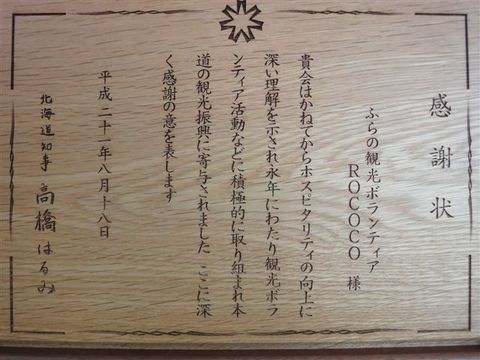 感謝状
ふらの観光ボランティア
ROCOCO 様
貴会はかねてからホスピタリティの向上に
深い理解を示され永年にわたり観光ボラ
ンティア活動などに積極的に取り組まれ本
道の観光振興に寄与されました ここに深
く感謝の意を表します
平成二十一年八月十八日
北海道知事 高橋はるみ